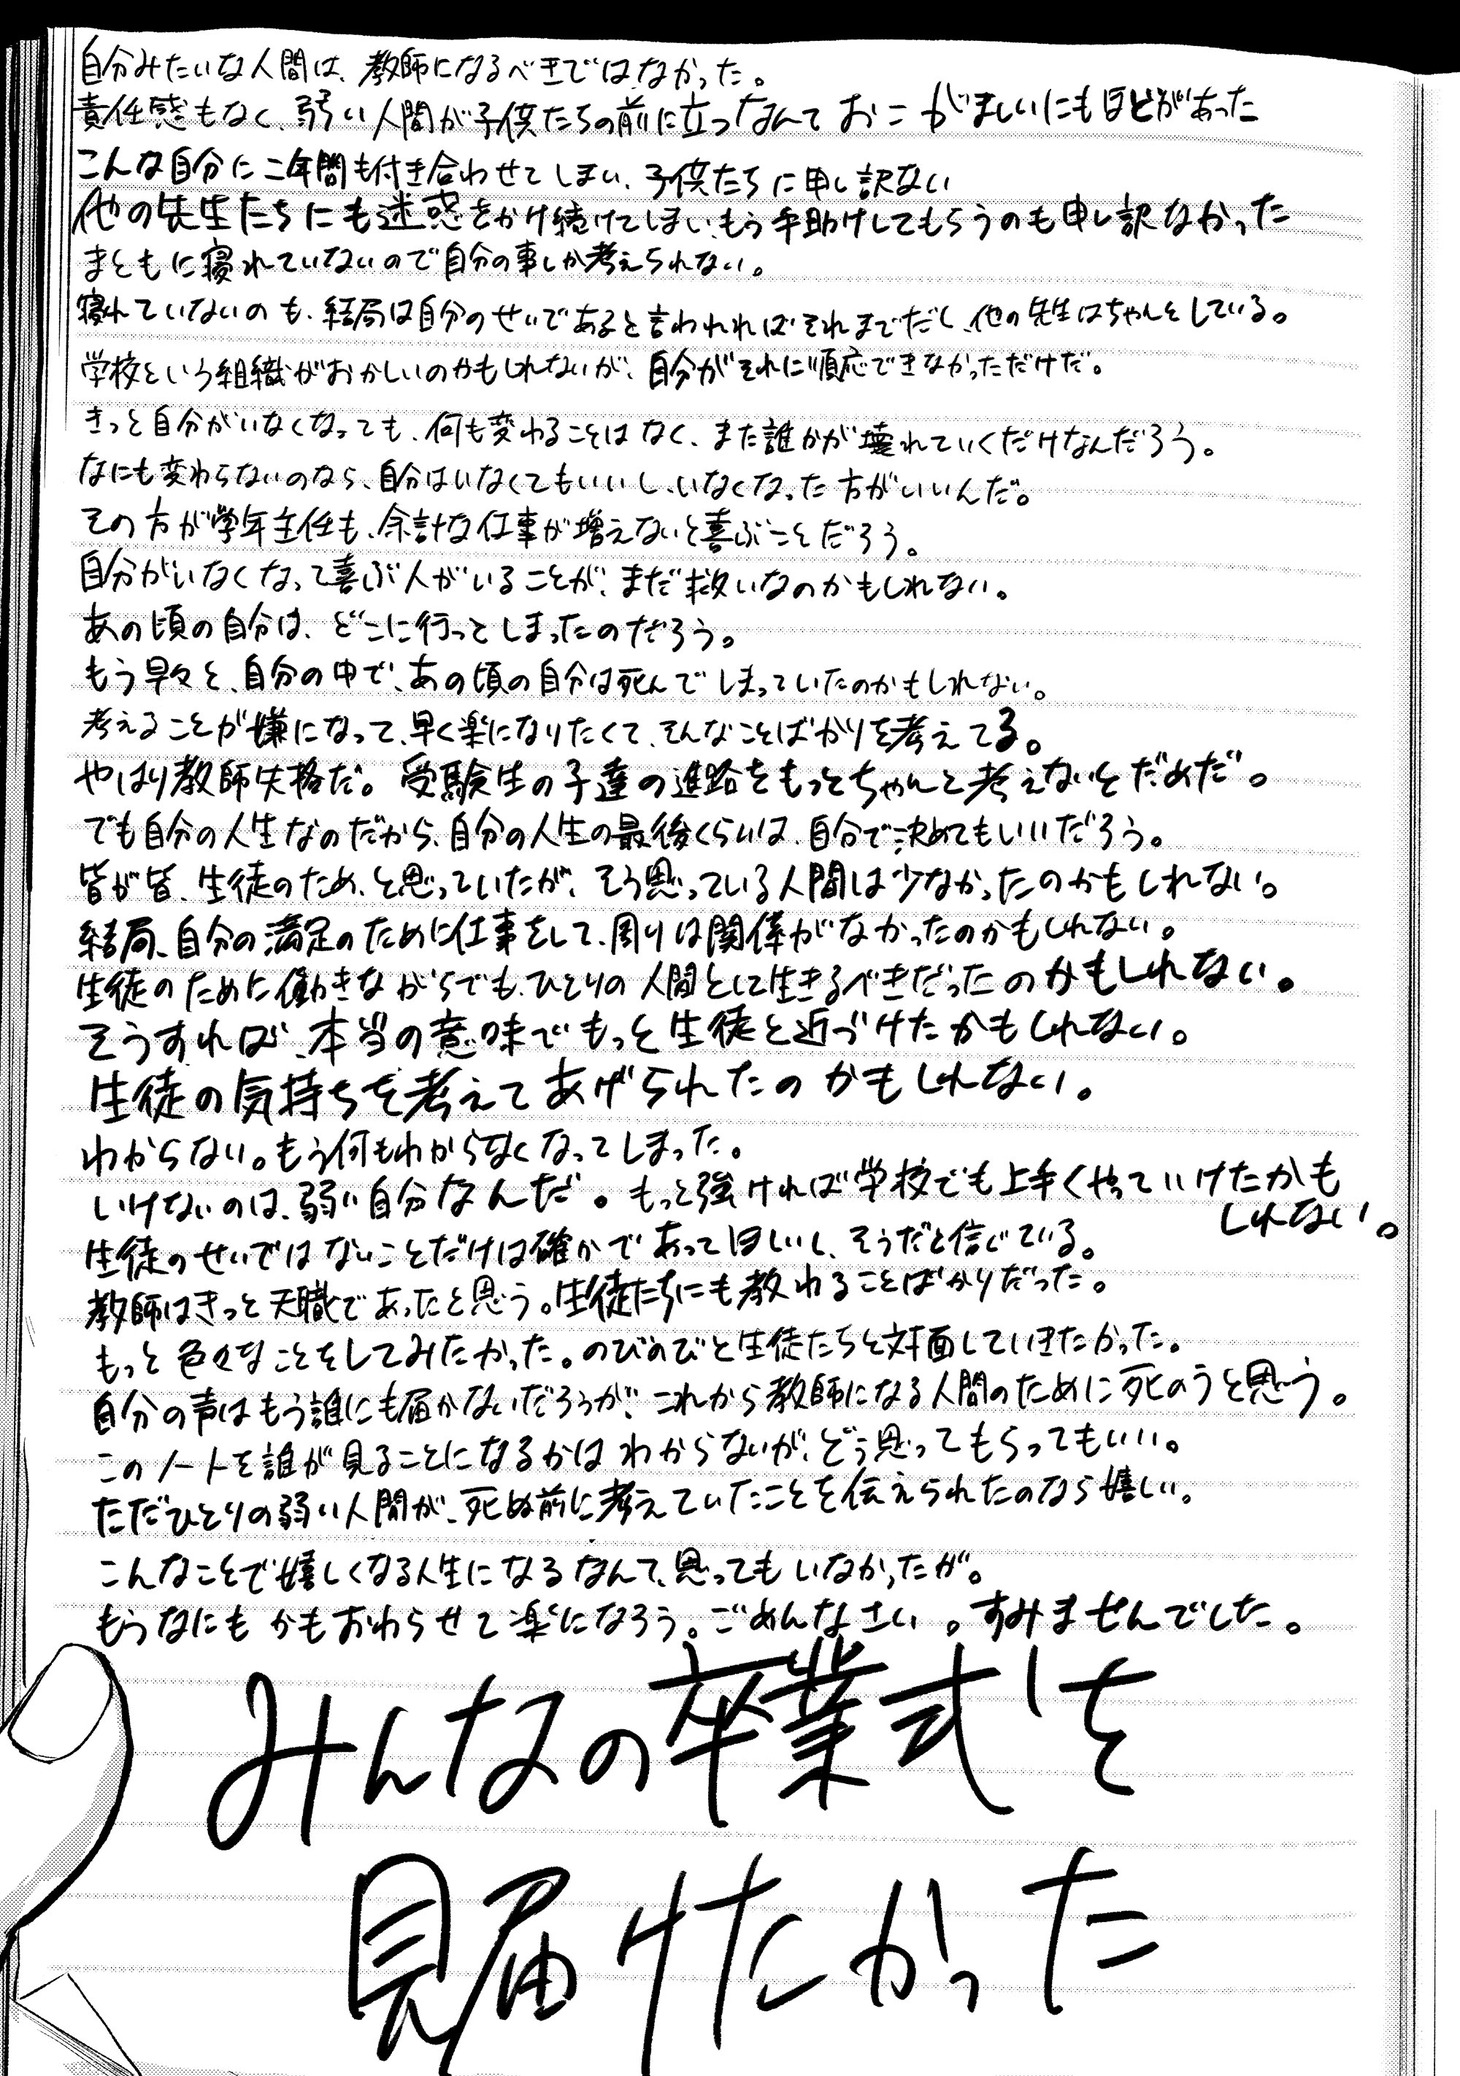 自分みたいな人間は、教師になるべきではなかった。
責任感もなく、弱い人間が子供たちの前に立つなんておこがましいにもほどがあった
こんな自分に二年間も付き合わせてしまい、子供たちに申し訳ない
他の先生たちにも迷惑をかけ続けてしまい、もう手助けしてもらうのも申し訳なかった
まともに寝れていないので自分の事しか考えられない。
寝れていないのも、結局は自分のせいであると言われればそれまでだし、他の先生はちゃんとしている。
学校という組織がおかしいのかもしれないが、自分がそれに順応できなかっただけだ。
きっと自分がいなくなっても、何も変わることはなく、また誰かが壊れていくだけなんだろう。
なにも変わらないのなら、自分はいなくてもいいし、いなくなった方がいいんだ。
その方が学年主任も、余計な仕事が増えないと喜ぶことだろう。
自分がいなくなって喜ぶ人がいることが、まだ救いなのかもしれない。
あの頃の自分は、どこに行ってしまったのだろう。
もう早々と、自分の中で、あの頃の自分は死んでしまっていたのかもしれない。
考えることが嫌になって、早く楽になりたくて、そんなことばかりを考えてる。
やはり教師失格だ。受験生の子達の進路をもっとちゃんと考えないとだめだ。
でも自分の人生なのだから、自分の人生の最後くらいは、自分で決めてもいいだろう。
皆が皆、生徒のため、と思っていたが、そう思っている人間は少なかったのかもしれない。
結局、自分の満足のために仕事をして、周りは関係がなかったのかもしれない。
生徒のために働きながらでも、ひとりの人間として生きるべきだったのかもしれない。
そうすれば、本当の意味でもっと生徒と近づけたかもしれない。
生徒の気持ちを考えてあげられたのかもしれない。
わからない。もう何もわからなくなってしまった。
いけないのは、弱い自分なんだ。もっと強ければ学校でも上手くやっていけたかも
しれない。
生徒のせいではないことだけは確かであってほしいし、そうだと信じている。
教師はきっと天職であったと思う。生徒たちにも教わることばかりだった。
もっと色々なことをしてみたかった。のびのびと生徒たちと対面していきたかった。
自分の声はもう誰にも届かないだろうが、これから教師になる人間のために死のうと思う。
このノートを誰が見ることになるかはわからないが、どう思ってもらってもいい。
ただひとりの弱い人間が、死ぬ前に考えていたことを伝えられたのなら嬉しい。
こんなことで嬉しくなる人生になるなんて、思ってもいなかったが。
もうなにもかもおわらせて楽になろう。ごめんなさい。すみませんでした。
みんなの卒業式を
見届けたかった